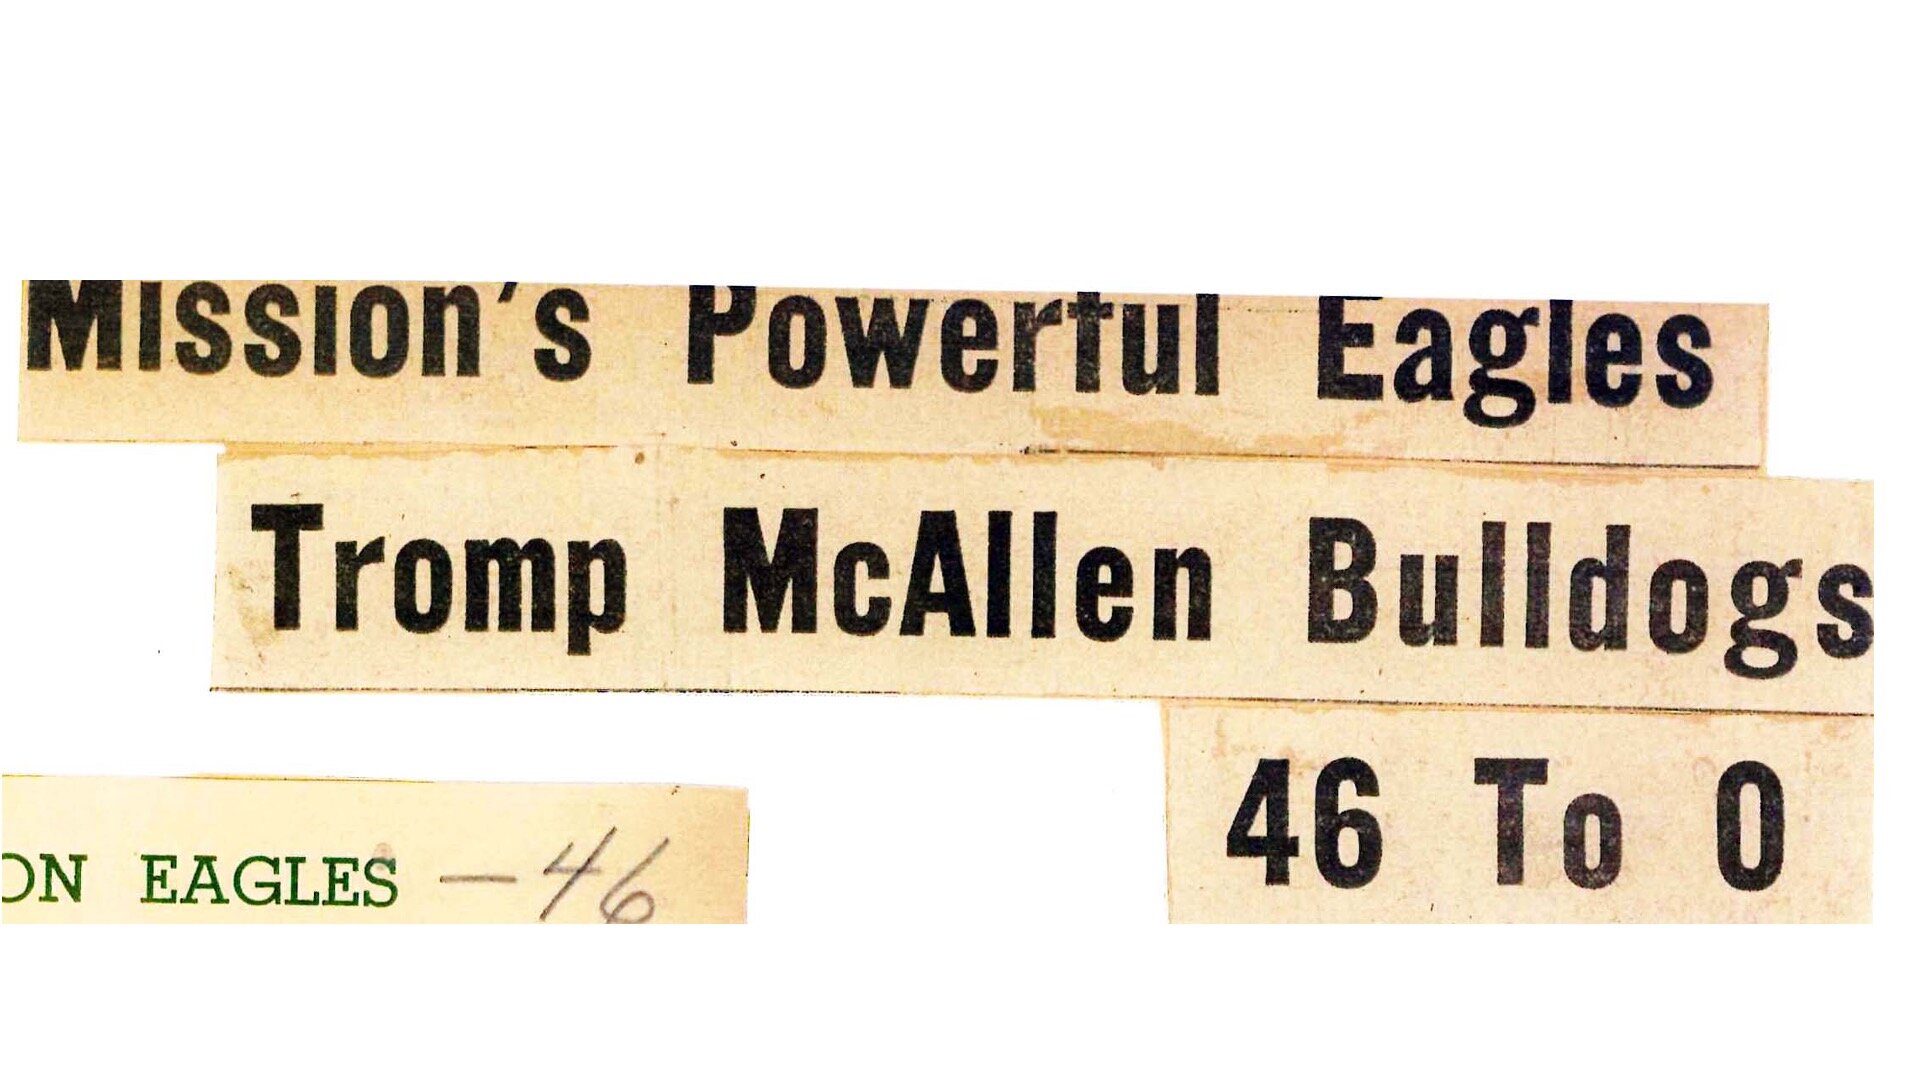 Mission's Powerful Eagles
Tromp McAllen Bulldogs
46 To 0
ON EAGLES — 46